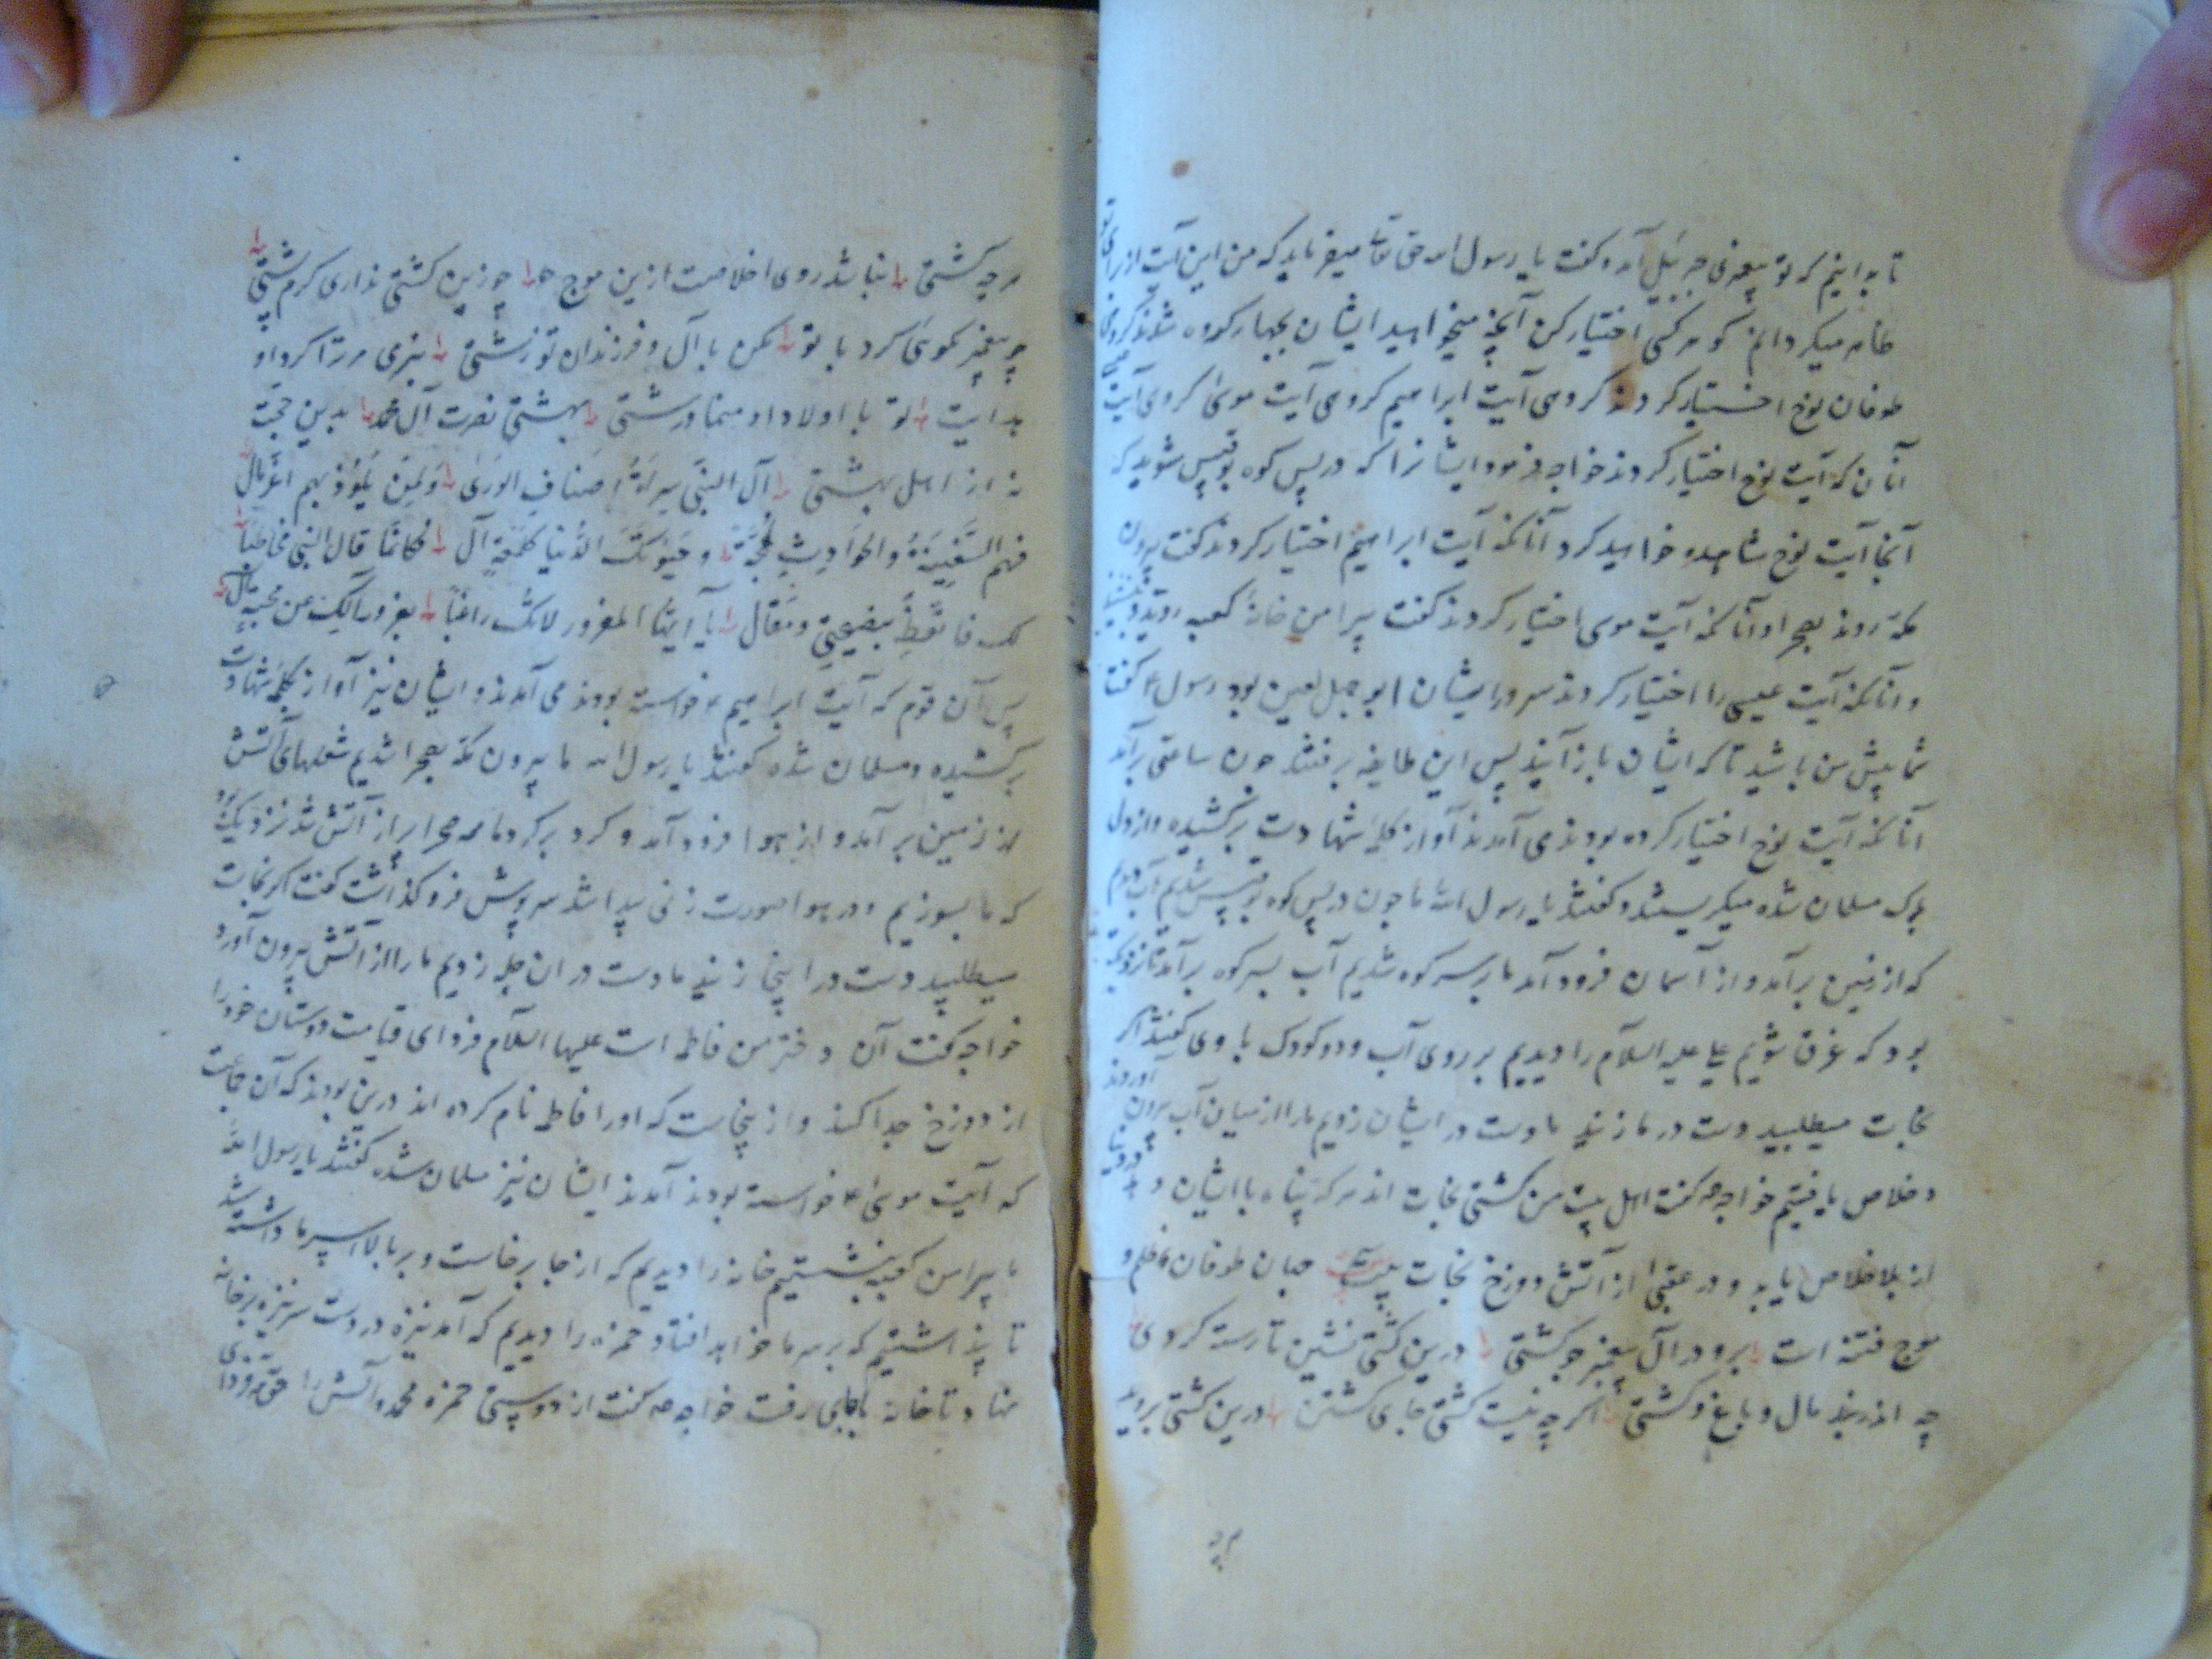 تا بدانیم که تو پیغمبری جبرئیل آمد و گفت یا رسول الله حق تعالی میفرماید که من این آیت از برای
ظاهر میگردانم گو هر کسی اختیار کن آنچه میخواهید ایشان بچهار گروه شدند گروهی
طوفان نوح اختیار کردند گروهی آیت ابراهیم گروهی آیت موسی گروهی آیت
آنان که آیت نوح اختیار کردند خواجه فرمود ایشانرا که در پس کوه بوقبیس شوید که
آنجا آیت نوح مشاهده خواهید کرد آنانکه آیت ابراهیم اختیار کردند گفت بیرون
مکه روند بصحرا و آنانکه آیت موسی اختیار کردند گفت پیرامن خانه کعبه روید
و آنانکه آیت عیسی را اختیار کردند سرور ایشان ابوجهل لعین بود رسول گفت
شما پیش من باشید تا که ایشان باز آیند پس این طایفه برفتند چون ساعتی برآمد
آنانکه آیت نوح اختیار کرده بودند می آمدند آواز کلمه شهادت برکشیده و از دل
پاک مسلمان شده میگریستند و گفتند یا رسول الله ما چون در پس کوه بوقبیس شدیم آب دیدیم
که از زمین برآمد و از آسمان فرود آمد ما بر سر کوه شدیم آب بسر کوه برآمد تا نزدیک
بود که غرق شویم علی علیه السلام را دیدیم بر روی آب و دو کودک با وی گفتند اگر
نجات میطلبید دست در ما زنید ما دست در ایشان زدیم ما را از میان آب بیرون آوردند
و خلاص یافتیم خواجه گفت اهل بیت من کشتی نجات اند هر که پناه با ایشان دهد در دنیا
از بلا خلاص یابد و در عقبی از آتش دوزخ نجات بیت جهان طوفان ظلم و
موج فتنه است برو در آل پیغمبر جو کشتی درین کشتی نشین تا رسته گردی
چه اندر بند مال و باغ و کشتی اگر چه نیست کشتی جای کشتن درین کشتی برو
هر چه
هر چه کشتی نباشد روی اخلاصت ازین موج چو زین کشتی نداری کرم پشتی
چو پیغمبر نکوئی کرد با تو مکن با آل و فرزندان تو زشتی بنرمی مر ترا کرد او
هدایت تو با اولاد او منما درشتی بهشتی نصرت آل محمد بدین حجت
نه از اهل بهشتی آل النبی اصناف الوری ولمن یلوذ بهم
فهم السفینة والحوادث لجة وحیوتک الدنیا کلمعة آل فکانما قال النبی مخاطبا
لک فاتعظ بنصیحتی ومقال یا ایها المغرور لاتک راغبا بغرور مالک عن محبة آل
پس آن قوم که آیت ابراهیم خواسته بودند می آمدند و ایشان نیز آواز کلمه شهادت
برکشیده و مسلمان شده گفتند یا رسول الله ما بیرون مکه بصحرا شدیم شعلهای آتش
از زمین برآمد و از هوا فرود آمد و گرد بر گرد ما همه صحرا پر از آتش شد نزدیک بود
که ما بسوزیم و در هوا صورت زنی پیدا شد سرپوش فرو گذاشت گفت اگر نجات
میطلبید دست در اینجا زنید ما دست در آن جا زدیم ما را از آتش بیرون آورد
خواجه گفت آن دختر من فاطمه است علیها السلام فردای قیامت دوستان خود را
از دوزخ جدا کند و ازینجاست که او را فاطمه نام کرده اند درین بودند که آن جماعت
که آیت موسی خواسته بودند آمدند ایشان نیز مسلمان شده گفتند یا رسول الله
ما پیرامن کعبه بنشستیم خانه را دیدیم که از جا برخاست و بر بالا سر ما داشته شد
تا پنداشتیم که بر سر ما خواهد افتاد حمزه را دیدیم که آمد نیزه در دست سر نیزه بر خانه
نهاد تا خانه با جای رفت خواجه گفت از دوستی حمزه محمد را آتش را حق فردای